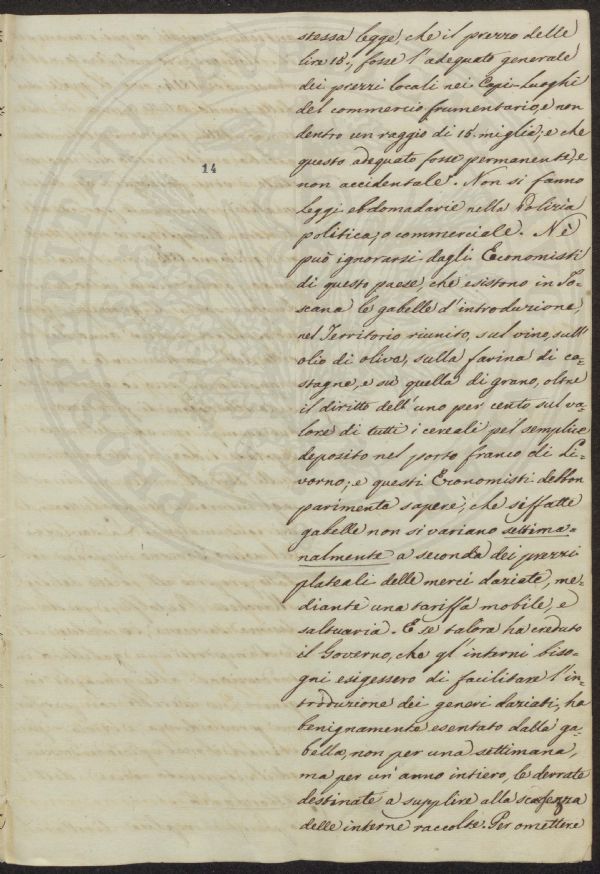 stessa legge, che il prezzo delle
lire 15., fosse l'adequato generale
dei prezzi locali nei Capi-Luoghi
del commercio frumentario, e non
dentro un raggio di 15 miglia; e che
questo adequato fosse permanente, e
non accidentale. Non si fanno
14
leggi ebdomadarie nella Polizia
politica, o commerciale. Nè
può ignorarsi dagli Economisti
di questo paese, che esistono in To-
scana le gabelle d'introduzione,
nel Territorio riunito, sul vino, sull'
olio di oliva, sulla farina di ca-
stagne, e su quella di grano, oltre
il diritto dell'uno per cento sul va-
lore di tutti i cereali pel semplice
deposito nel porto franco di Li-
vorno; e questi Economisti debbon
parimente sapere, che siffatte
gabelle non si variano settima-
nalmente a seconda dei prezzi
plateali delle merci daziate, me-
diante una tariffa mobile, e
saltuaria. E se talora ha creduto
il Governo, che gl'interni biso-
gni esigessero di facilitare l'in-
troduzione dei generi daziati, ha
benignamente esentato dalla ga-
bella, non per una settimana,
ma per un'anno intiero, le derrate
destinate a supplire alla scarsezza
delle interne raccolte. Per omettere
PROSPERITATI